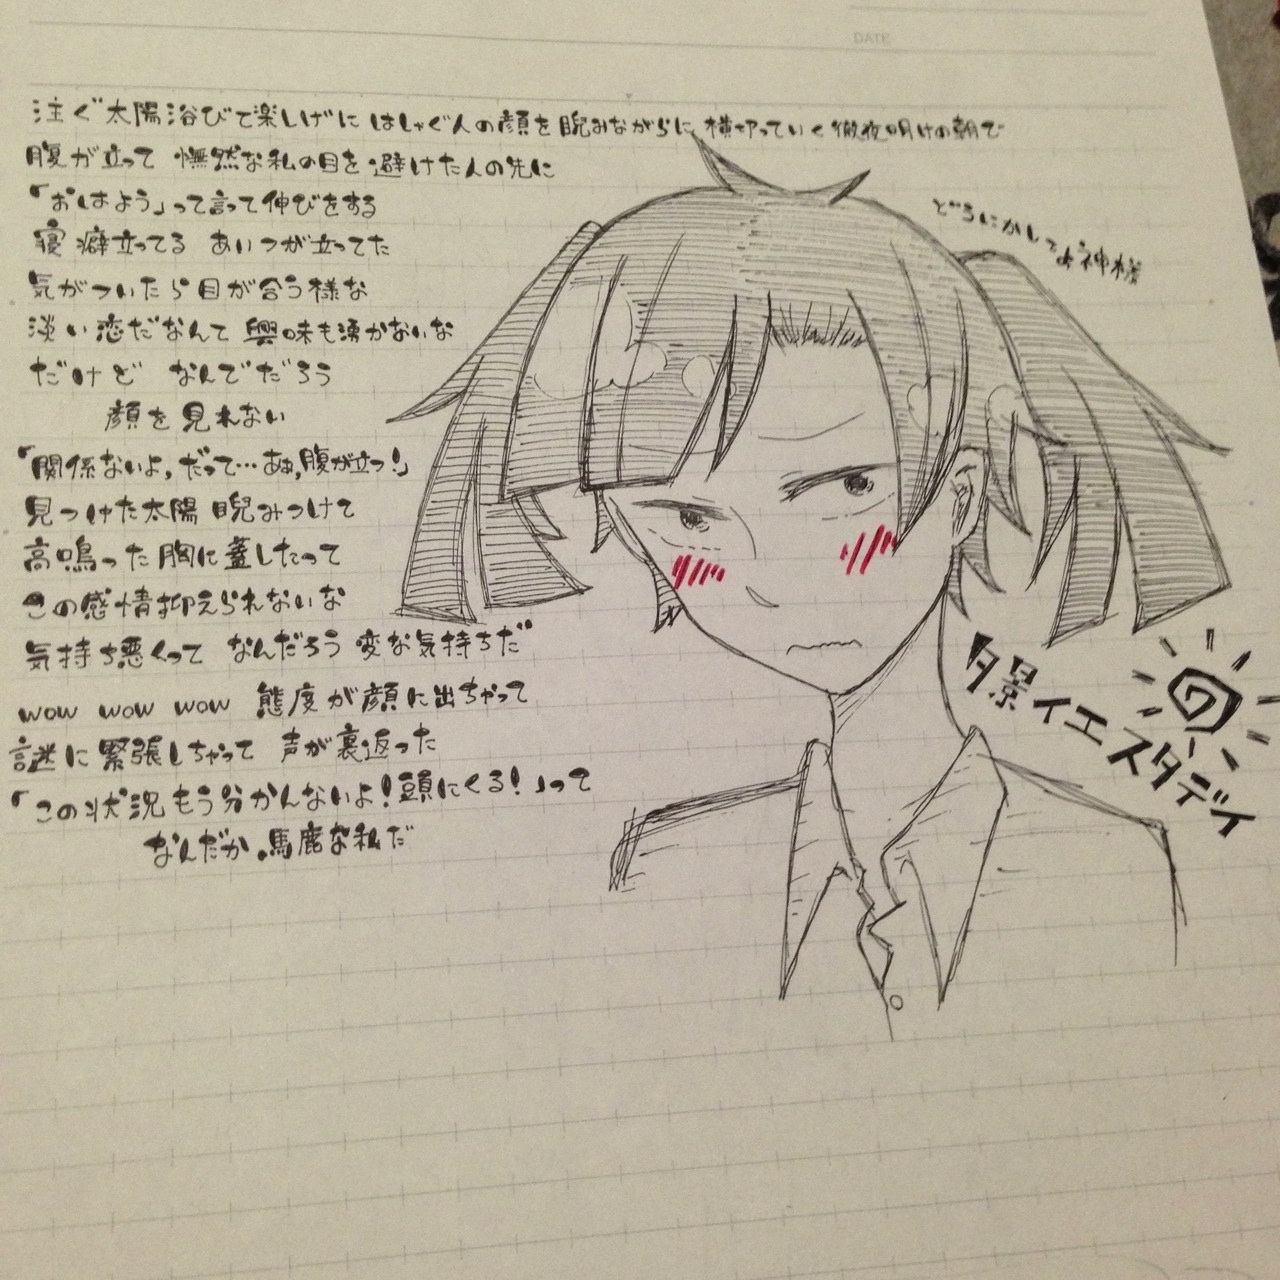 DATE
注ぐ太陽浴びて楽しげに はしゃぐ人の顔を睨みながらに 横切っていく徹夜明けの朝で
腹が立って 憮然な私の目を避けた人の先に
「おはよう」って言って伸びをする
寝癖立ってる あいつが立ってた
気がついたら目が合う様な
淡い恋だなんて 興味も湧かないな
だけど なんでだろう
顔を見れない
「関係ないよ,だって…あぁ,腹が立つ!」
見つけた太陽 睨みつけて
高鳴った胸に蓋したって
この感情抑えられれないな
気持ち悪くって なんだろう 変な気持ちだ
wow wow wow 態度が顔に出ちゃって
謎に緊張しちゃって 声が裏返った
「この状況もう分かんないよ!頭にくる!」って
なんだか、馬鹿な私だ
どうにかしてよ神様
夕景イエスタデイ